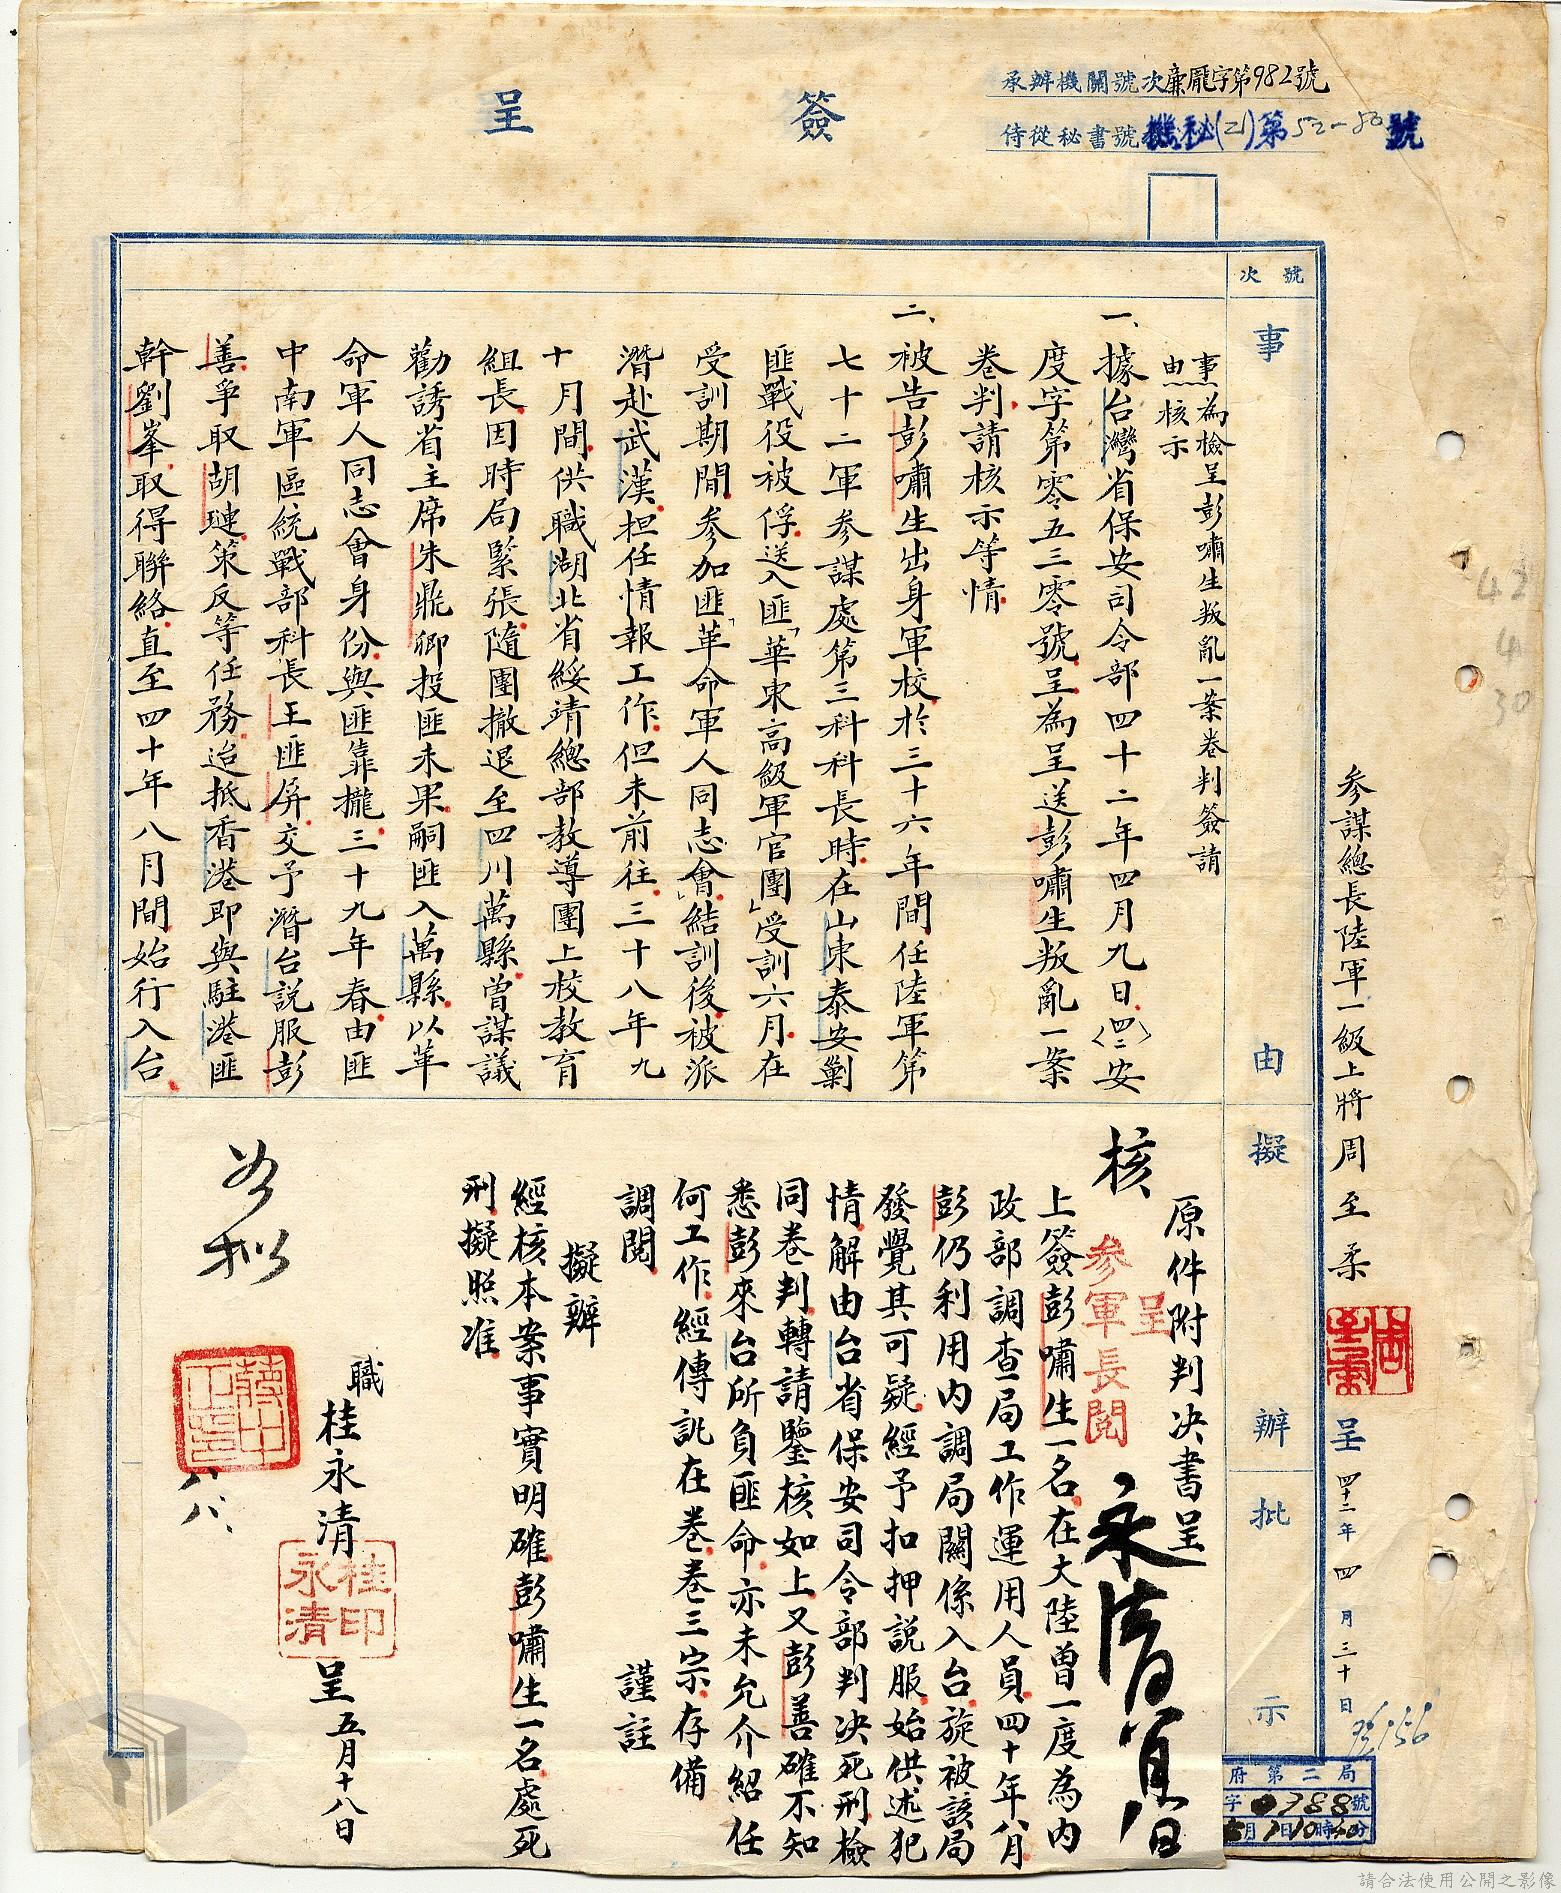 簽呈
承辦機關號次廉龎字第982號
侍從秘書號機秘(乙)第52-80號
號次
事由
擬辦
批示
參謀總長陸軍一級上將周至柔
呈四十二年四月三十日
事由:為檢呈彭嘯生叛亂一案卷判簽請
核示
一、據台灣省保安司令部四十二年四月九日(四二)安
度字第零五三零號呈為呈送彭嘯生叛亂一案
卷判請核示等情
二、被告彭嘯生出身軍校於三十六年間任陸軍第
七十二軍參謀處第三科科長時在山東泰安剿
匪戰役被俘送入匪「華東高級軍官團」受訓六月在
受訓期間參加匪「革命軍人同志會」結訓後被派
潛赴武漢担任情報工作但未前往三十八年九
十月間供職湖北省綏靖總部教導團上校教育
組長因時局緊張隨團撤退至四川萬縣曾謀議
勸誘省主席朱鼎卿投匪未果嗣匪入萬縣以革
命軍人同志會身份與匪靠攏三十九年春由匪
中南軍區統戰部科長王匪屏交予潛台説服彭
善爭取胡璉策反等任務迨抵香港即與駐港匪
幹劉峯取得聯絡直至四十年八月間始行入台
原件附判決書呈
核
呈
參軍長閱
上簽彭嘯生一名在大陸曾一度為內
政部調查局工作運用人員四十年八月
彭仍利用內調局關係入台旋被該局
發覺其可疑經予扣押説服始供述犯
情解由台省保安司令部判決死刑檢
同卷判轉請鑒核如上又彭善確不知
悉彭來台所負匪命亦未允介紹任
何工作經傳訊在卷卷三宗存備
調閱
謹註
擬辦
經核本案事實明確彭嘯生一名處死
刑擬照准
職桂永清
桂永清印
呈五月十八日
如擬
蔣中正印
八、八、
府第二局
字0788號
5月1日10時40分
42
4
30
請合法使用公開之影像